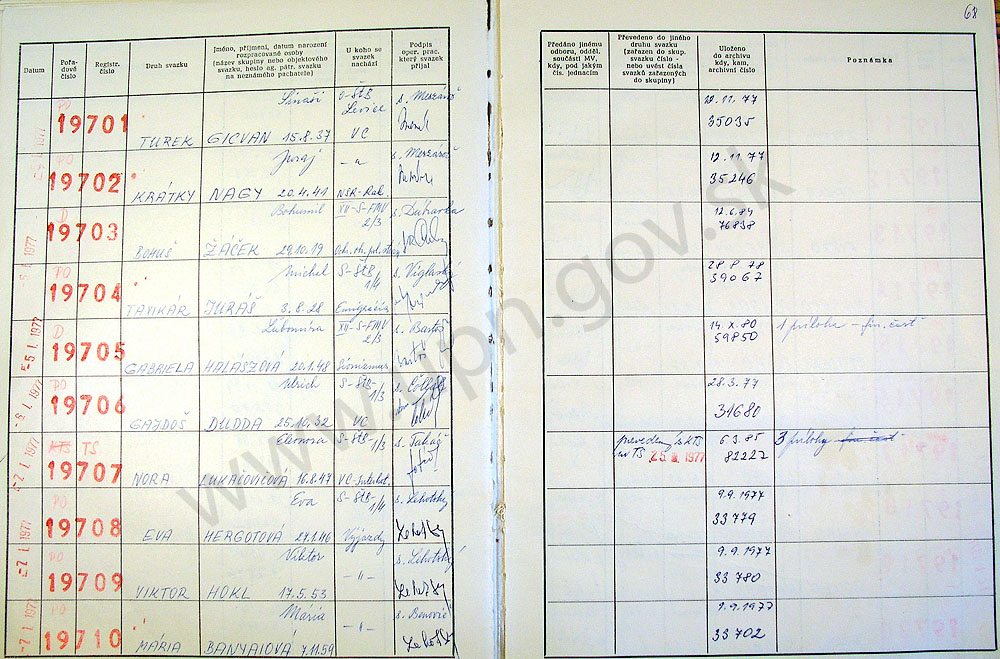 68
Datum
Pořadové číslo
Registr. číslo
Druh svazku
Jméno, příjmení, datum narození rozpracované osoby (název skupiny nebo objektového svazku, heslo ag. pátr. svazku na neznámého pachatele)
U koho se svazek nachází
Podpis oper. prac. který svazek přijal
Předáno jinému odboru, odděl. součásti MV, kdy, pod jakým čís. jednacím
Převedeno do jiného druhu svazku (zařazen do skup. svazku číslo - nebo uvést čísla svazků zařazených do skupiny)
Uloženo do archivu kdy, kam, archivní číslo
Poznámka
PO
19701
TUREK
GICVAN 15.8.37
Levice
VC
35035
PO
19702
KRÁTKY
Juraj
NAGY 20.4.41
12.11.77
35246
D
19703
BOHUŠ
Bohumil
ŽÁČEK 29.10.19
XII-S-FMV 2/3
s. Dubravka
12.6.84
76838
PO
19704
TANKÁR
Michal
JURÁŠ 3.8.28
S-ŠtB 1/4
Emigrácia
39067
-5 I. 1977
D
19705
GABRIELA
Ľubomíra
HALÁSZOVÁ 20.1.48
XII-S-FMV 2/3
Sionizmus
s. Bartoš
14.X.80
59850
1 príloha – fin. časť
PO
19706
GAJDOŠ
Ulrich
DUDDA 25.10.32
S-ŠtB- 1/3
VC
28.3.77
31680
-7 I. 1977
KTS TS
19707
NORA
Eleonora
LUKAČOVIČOVÁ 16.8.47
S-ŠtB- 1/3
s. Takáč
prevedený z KTS
na TS
6.3.85
82227
3 prílohy fin. časť
-7 I. 1977
PO
19708
EVA
Eva
HERGOTOVÁ 27.1.46
S-ŠtB- 1/4
Výjazdy
s. Lehotský
9.9.1977
33779
-7 I. 1977
PO
19709
VIKTOR
Viktor
HOKL 17.5.53
-"-
s. Lehotský
9.9.1977
33780
-7 I. 1977
PO
19710
MÁRIA
Mária
BANYAIOVÁ 7.11.59
-"-
9.9.1977
33702
www.upn.gov.sk